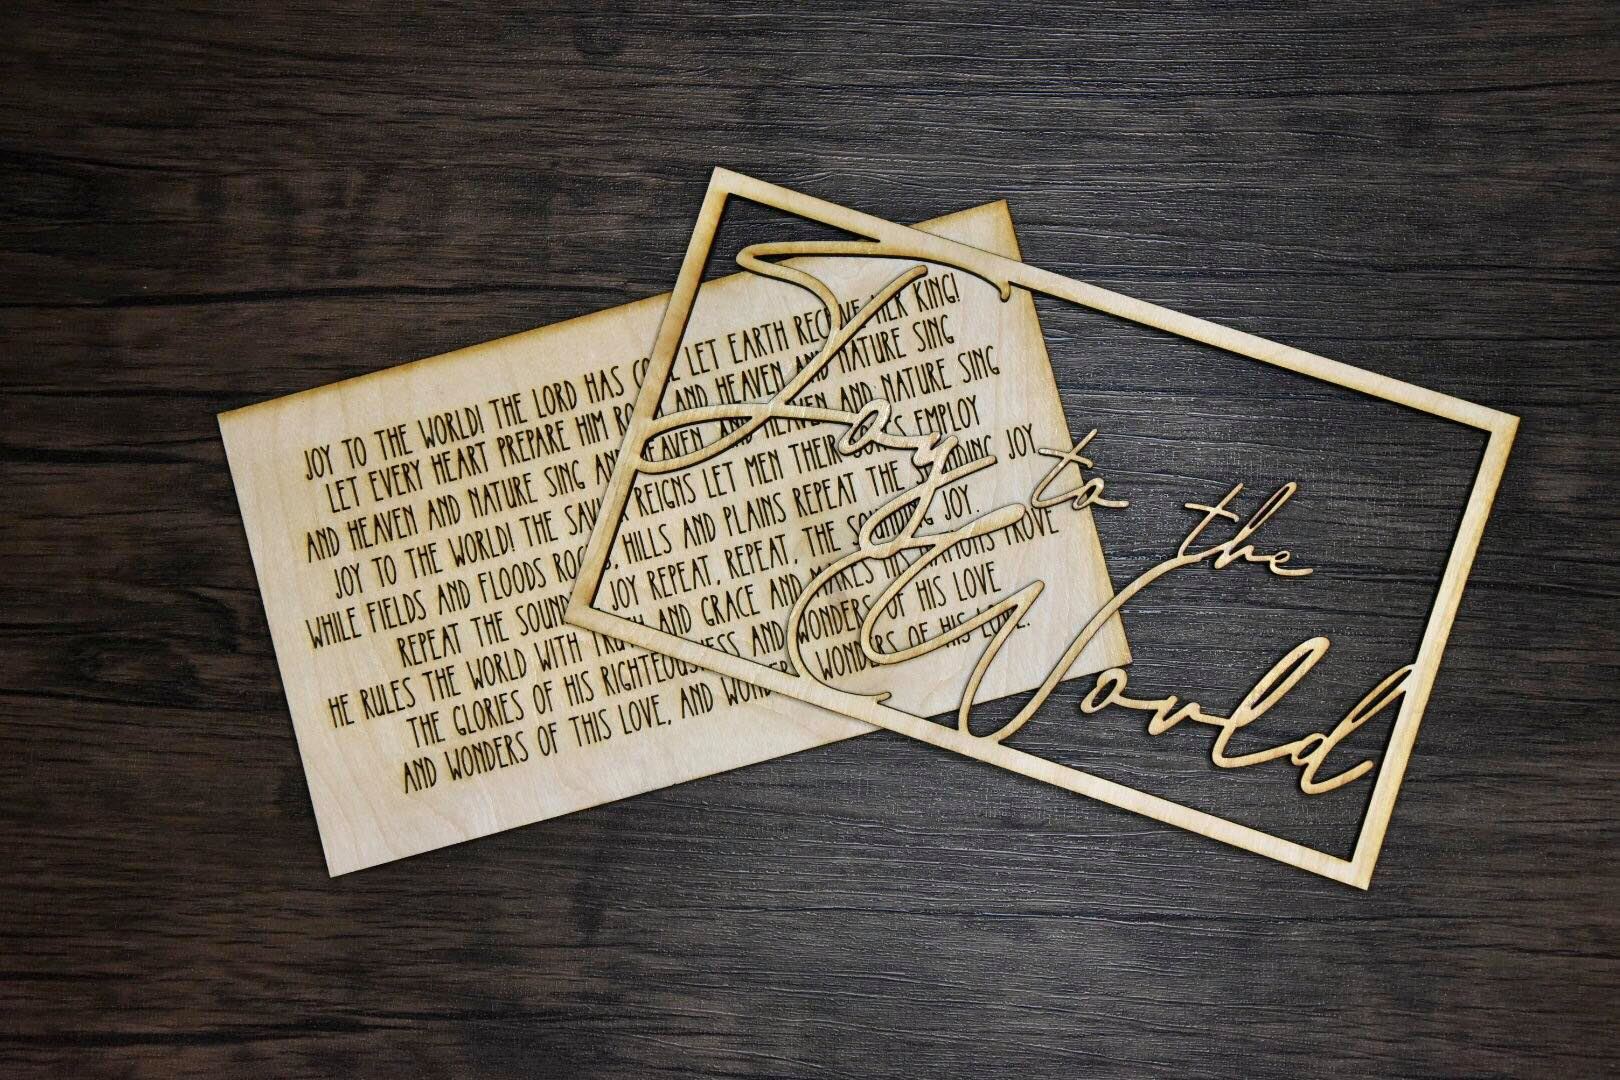 JOY TO THE WORLD! THE LORD HAS COME LET EARTH RECEIVE HER KING!
LET EVERY HEART PREPARE HIM ROOM AND HEAVEN AND NATURE SING
AND HEAVEN AND NATURE SING AND HEAVEN, AND HEAVEN AND NATURE SING
JOY TO THE WORLD! THE SAVIOR REIGNS LET MEN THEIR SONGS EMPLOY
WHILE FIELDS AND FLOODS ROCKS, HILLS AND PLAINS REPEAT THE SOUNDING JOY
REPEAT THE SOUNDING JOY REPEAT, REPEAT, THE SOUNDING JOY.
HE RULES THE WORLD WITH TRUTH AND GRACE AND MAKES THE NATIONS PROVE
THE GLORIES OF HIS RIGHTEOUSNESS AND WONDERS OF HIS LOVE
AND WONDERS OF THIS LOVE, AND WONDERS WONDERS OF HIS LOVE.
Joy to the
World